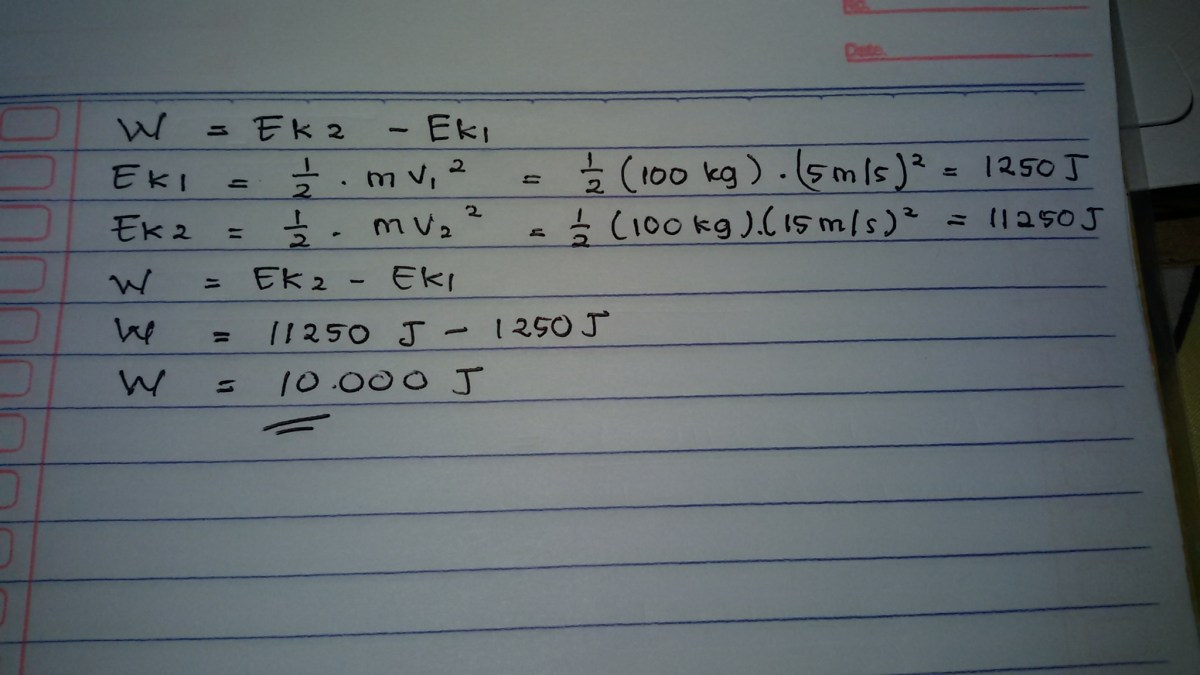 No.
Date.
W = EK2 - EK1
EK1 = 1/2 . m v₁² = 1/2 (100 kg) . (5 m/s)² = 1250 J
EK2 = 1/2 . m v₂² = 1/2 (100 kg).(15 m/s)² = 11250 J
W = EK2 - EK1
W = 11250 J - 1250 J
W = 10.000 J